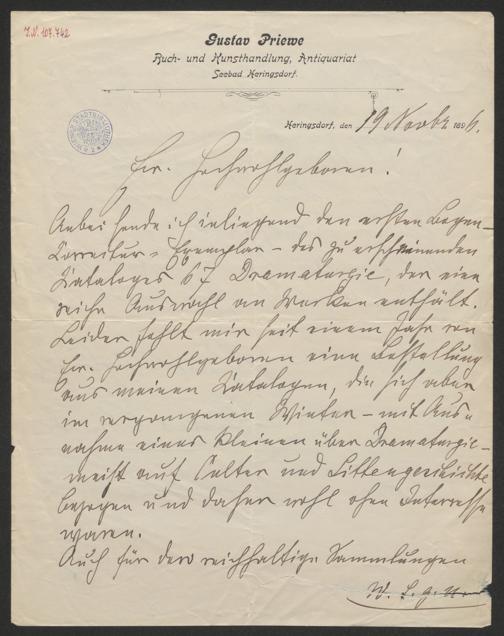 J.N. 107.742
Gustav Priewe
Buch- und Kunsthandlung, Antiquariat
Seebad Heringsdorf.
Heringsdorf, den 19 Novbr 1896.
Ew. Hochwohlgeboren!
Anbei sende ich inliegend den ersten Bogen
Correctur-Exemplar - des zu erscheinenden
Kataloges 67 Dramaturgie, der eine
reiche Auswahl an Werken enthält.
Leider fehlt mir seit einem Jahr von
Ew. Hochwohlgeboren eine Bestellung
aus meinen Katalogen, die sich aber
im vergangenen Winter - mit Aus=
nahme eines kleinen über Dramaturgie -
meist auf Cultur und Sittengeschichte
bezogen und daher wohl ohne Interesse
waren.
Auch für dero reichhaltige Sammlungen